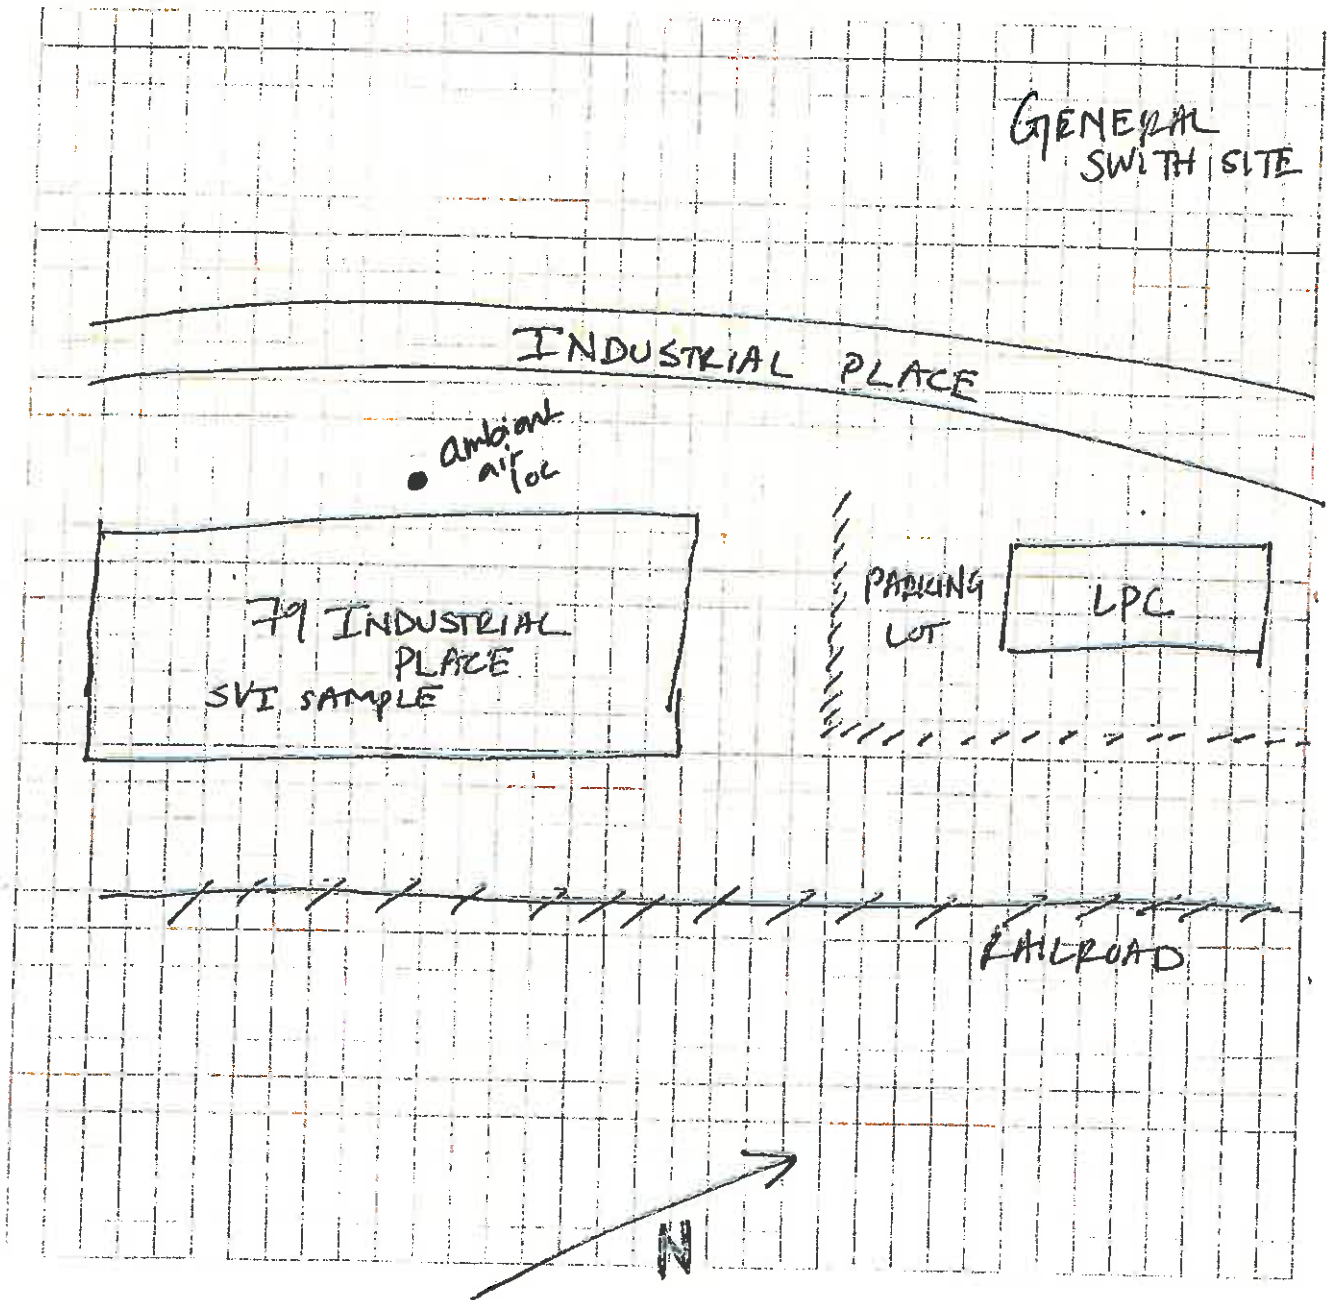 GENERAL
SWITH SITE
INDUSTRIAL PLACE
ambient
air
loc
79 INDUSTRIAL
PLACE
SVI SAMPLE
PARKING
LOT
LPC
RAILROAD
N